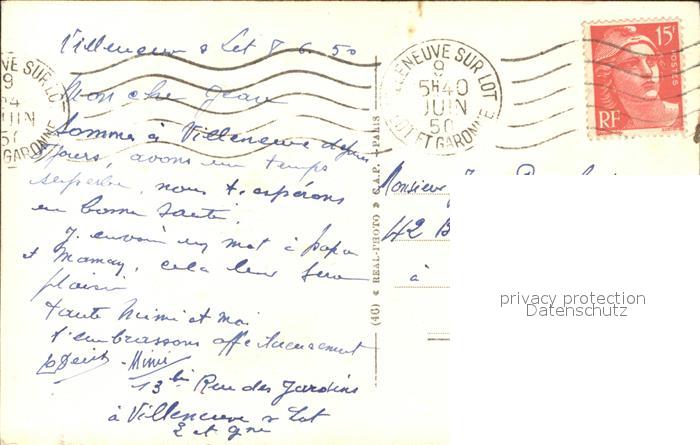 Villeneuve s Lot 8.6.50
Mon cher Jean
Sommes à Villeneuve depuis
jours, avons un temps
superbe, nous t. espérons
en bonne santé.
J. envoie un mot à papa
et Maman, cela leur fera
plaisir
tante Mimi et moi
t'embrassons affectueusement
Mimi
13 bis Rue des Jardins
à Villeneuve s Lot
L et Gne
(46) REAL-PHOTO C.A.P. - PARIS
VILLENEUVE SUR LOT
9
5H40
JUIN
50
LOT ET GARONNE
15F
POSTES
RF
Monsieur J
42 B
à
privacy protection
Datenschutz